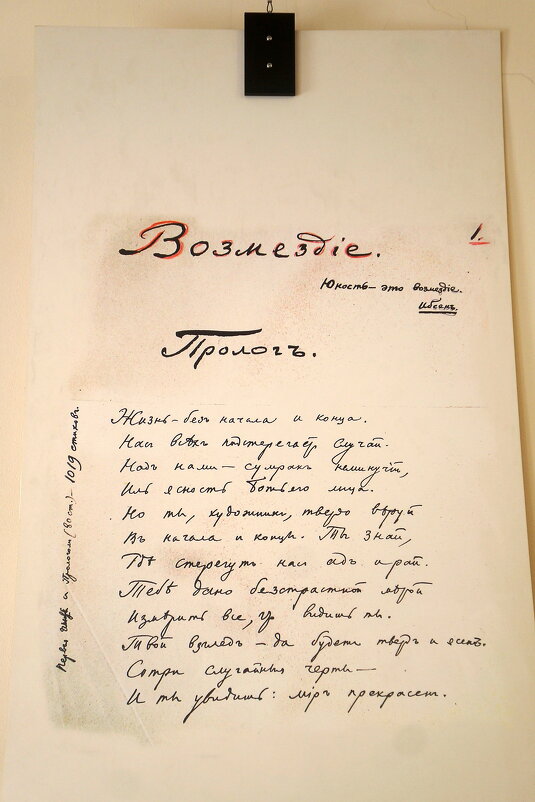 Возмездіе.
1.
Юность — это возмездіе.
Ибсенъ.
Прологъ.
Жизнь — безъ начала и конца.
Насъ всѣхъ подстерегаетъ случай.
Надъ нами — сумракъ неминучій,
Иль ясность Божьего лица.
Но ты, художникъ, твердо вѣруй
Въ начала и концы. Ты знай,
Гдѣ стерегутъ насъ адъ и рай.
Тебѣ дано безстрастной мѣрой
Измѣрить все, что видишь ты.
Твой взглядъ — да будетъ твердъ и ясенъ.
Сотри случайныя черты —
И ты увидишь: міръ прекрасенъ.
Первая глава и Прологомъ (80 ст.) — 1019 стиховъ.